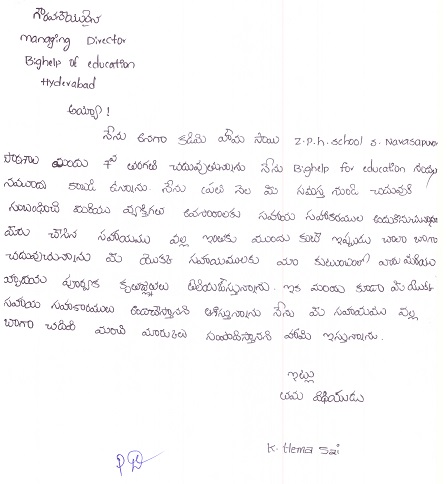 గౌరవనీయులైన
managing Director
Bighelp of education
Hyderabad
అయ్యా!
నేను అనగా కడిమి హేమ సాయి Z.P.H. School S. Narasapur
పాఠశాల యందు 7వ తరగతి చదువుతున్నాను నేను Bighelp for education సంస్థ
నమోదు కాబడి ఉన్నాను. నేను ప్రతి నెల మీ సమస్త నుండి చదువుకి
సంబంధించి మరియు వ్యక్తిగత అవసరాలకు సహాయ సహకారములు అందుకొనుచున్నాను
మీరు చేసిన సహాయము వల్ల ఇంతకు ముందు కంటే ఇప్పుడు చాలా బాగా
చదువుచున్నాను మీ యొక్క సహాయములకు మా కుటుంబంలో వారు మరియు
హృదయ పూర్వక కృతజ్ఞతలు తెలియజేస్తున్నాను. ఇక ముందు కూడా మీ యొక్క
సహాయ సహకారములు అందిస్తారని ఆశిస్తున్నాను నేను మీ సహాయము వల్ల
బాగా చదివి మంచి మార్కులు సంపాదిస్తానని హామీ ఇస్తున్నాను.
ఇట్లు
తమ విధేయుడు
K. Hema Sai